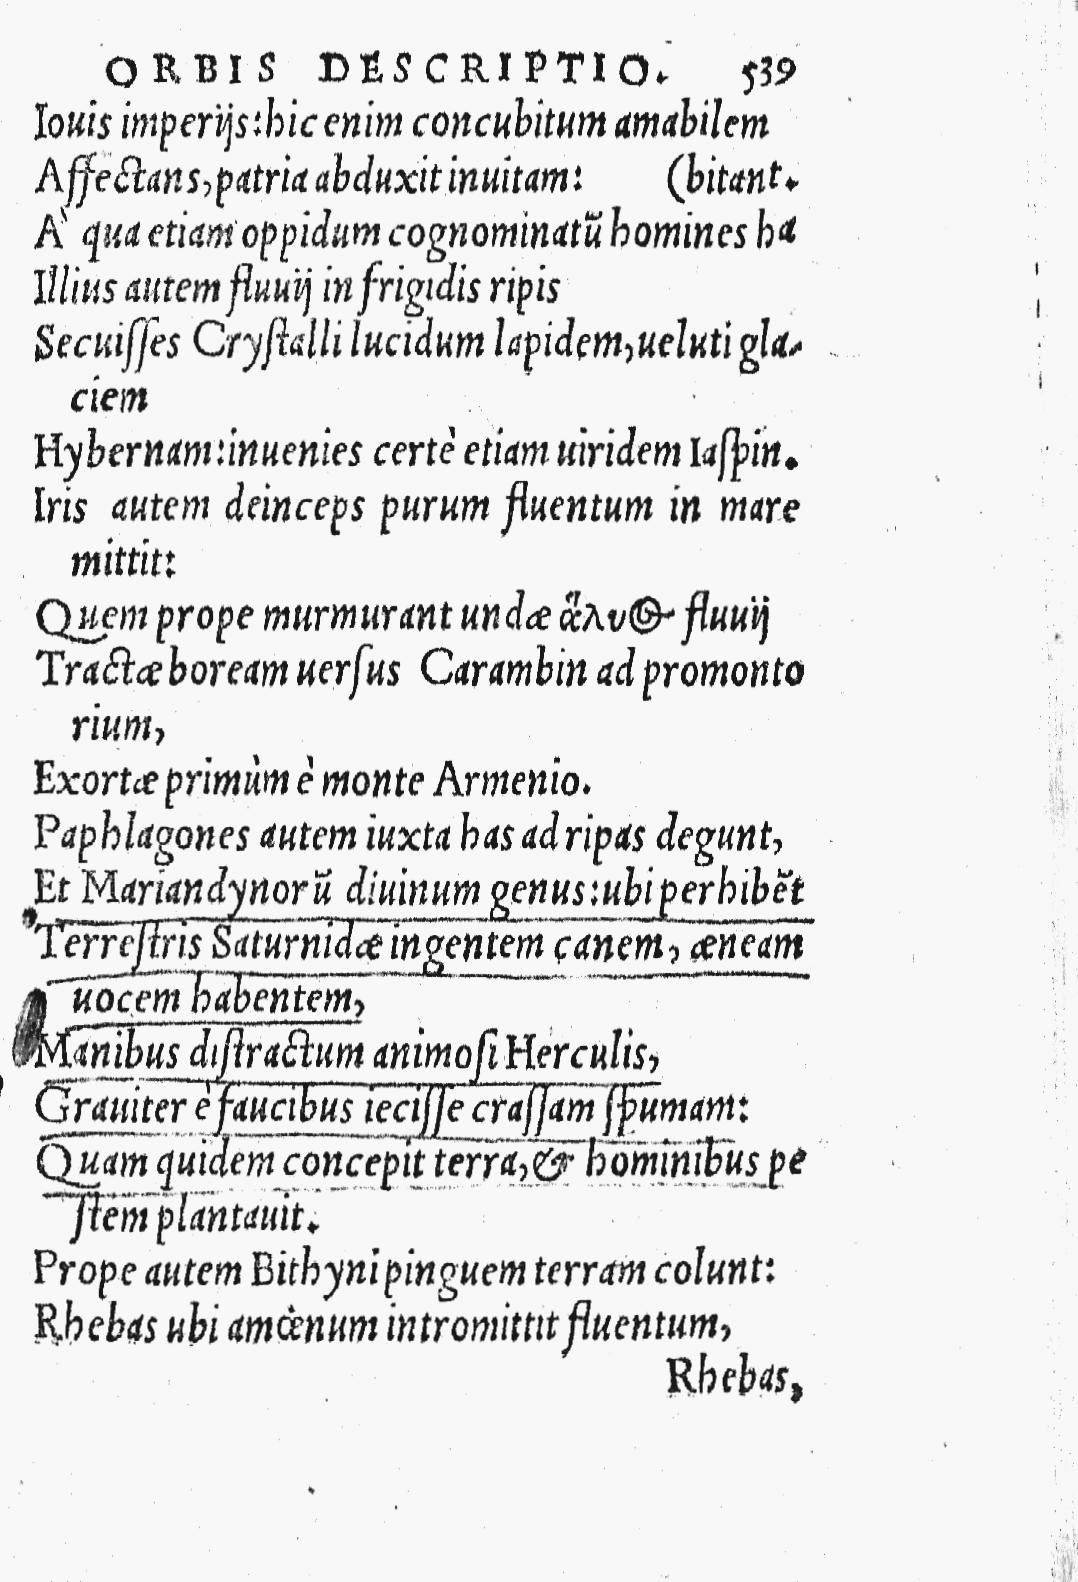 ORBIS DESCRIPTIO. 539
Iouis imperijs:hic enim concubitum amabilem
Aſſectans,patria abduxit inuitam: (bitant.
A` qua etiam oppidum cognominatũ homines ha
Illius autem fluuij in frigidis ripis
Secuiſſes Cryſtalli lucidum lapidem,ueluti gla-
ciem
Hybernam:inuenies certè etiam uiridem Iaſpin.
Iris autem deinceps purum fluentum in mare
mittit:
Quem prope murmurant undæ ἅλυος fluuij
Tractæ boream uerſus Carambin ad promonto
rium,
Exortæ primùm è monte Armenio.
Paphlagones autem iuxta has ad ripas degunt,
Et Mariandynorũ diuinum genus:ubi perhibẽt
Terreſtris Saturnidæ ingentem canem, æneam
uocem habentem,
Manibus diſtractum animoſi Herculis,
Grauiter è faucibus ieciſſe craſſam ſpumam:
Quam quidem concepit terra,& hominibus pe
ſtem plantauit.
Prope autem Bithyni pinguem terram colunt:
Rhebas ubi amœnum intromittit fluentum,
Rhebas,